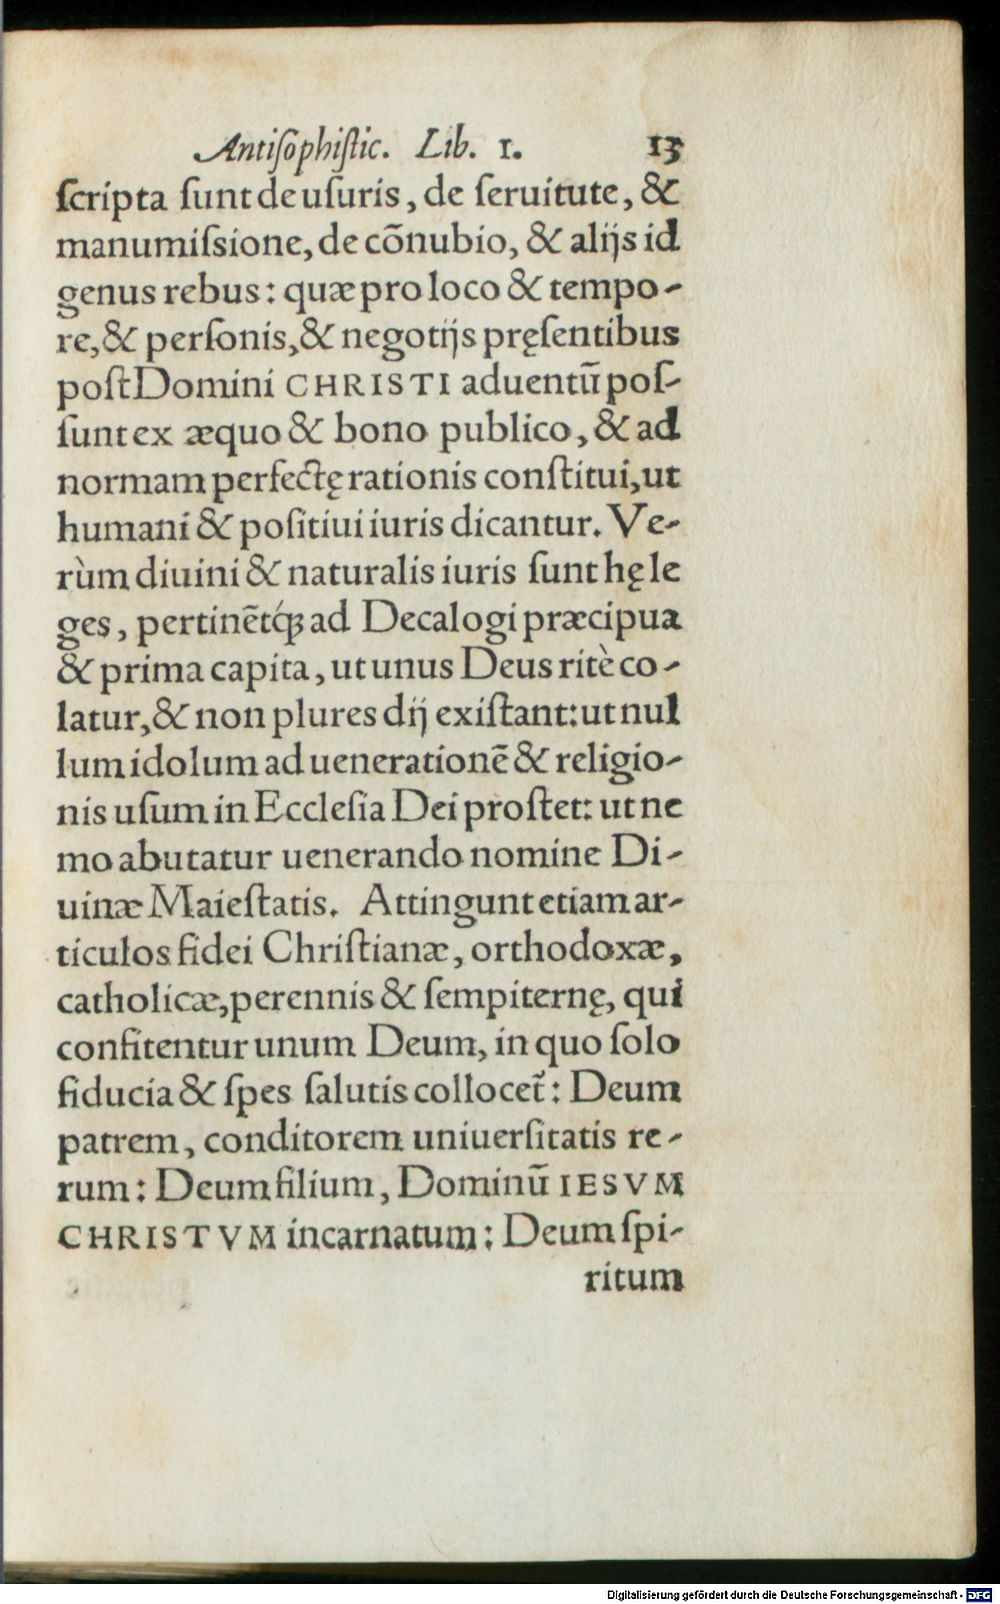 Antiſophiſtic. Lib. 1. 13
ſcripta ſunt de uſuris, de ſeruitute, &
manumiſsione, de cōnubio, & alijs id
genus rebus: quæ pro loco & tempo-
re, & perſonis, & negotijs pręſentibus
poſt Domini CHRISTI aduentū poſ-
ſunt ex æquo & bono publico, & ad
normam perfectę rationis conſtitui, ut
humani & poſitiui iuris dicantur. Ve-
rùm diuini & naturalis iuris ſunt hę le
ges, pertinēt&#769;q; ad Decalogi præcipua
& prima capita, ut unus Deus ritè co-
latur, & non plures dij exiſtant: ut nul
lum idolum ad uenerationē & religio-
nis uſum in Eccleſia Dei proſtet: ut ne
mo abutatur uenerando nomine Di-
uinæ Maieſtatis. Attingunt etiam ar-
ticulos fidei Chriſtianæ, orthodoxæ,
catholicæ, perennis & ſempiternę, qui
confitentur unum Deum, in quo ſolo
fiducia & ſpes ſalutis collocet̃: Deum
patrem, conditorem uniuerſitatis re-
rum: Deum filium, Dominū IESVM
CHRISTVM incarnatum: Deum ſpi-
ritum
Digitalisierung gefördert durch die Deutsche Forschungsgemeinschaft - DFG